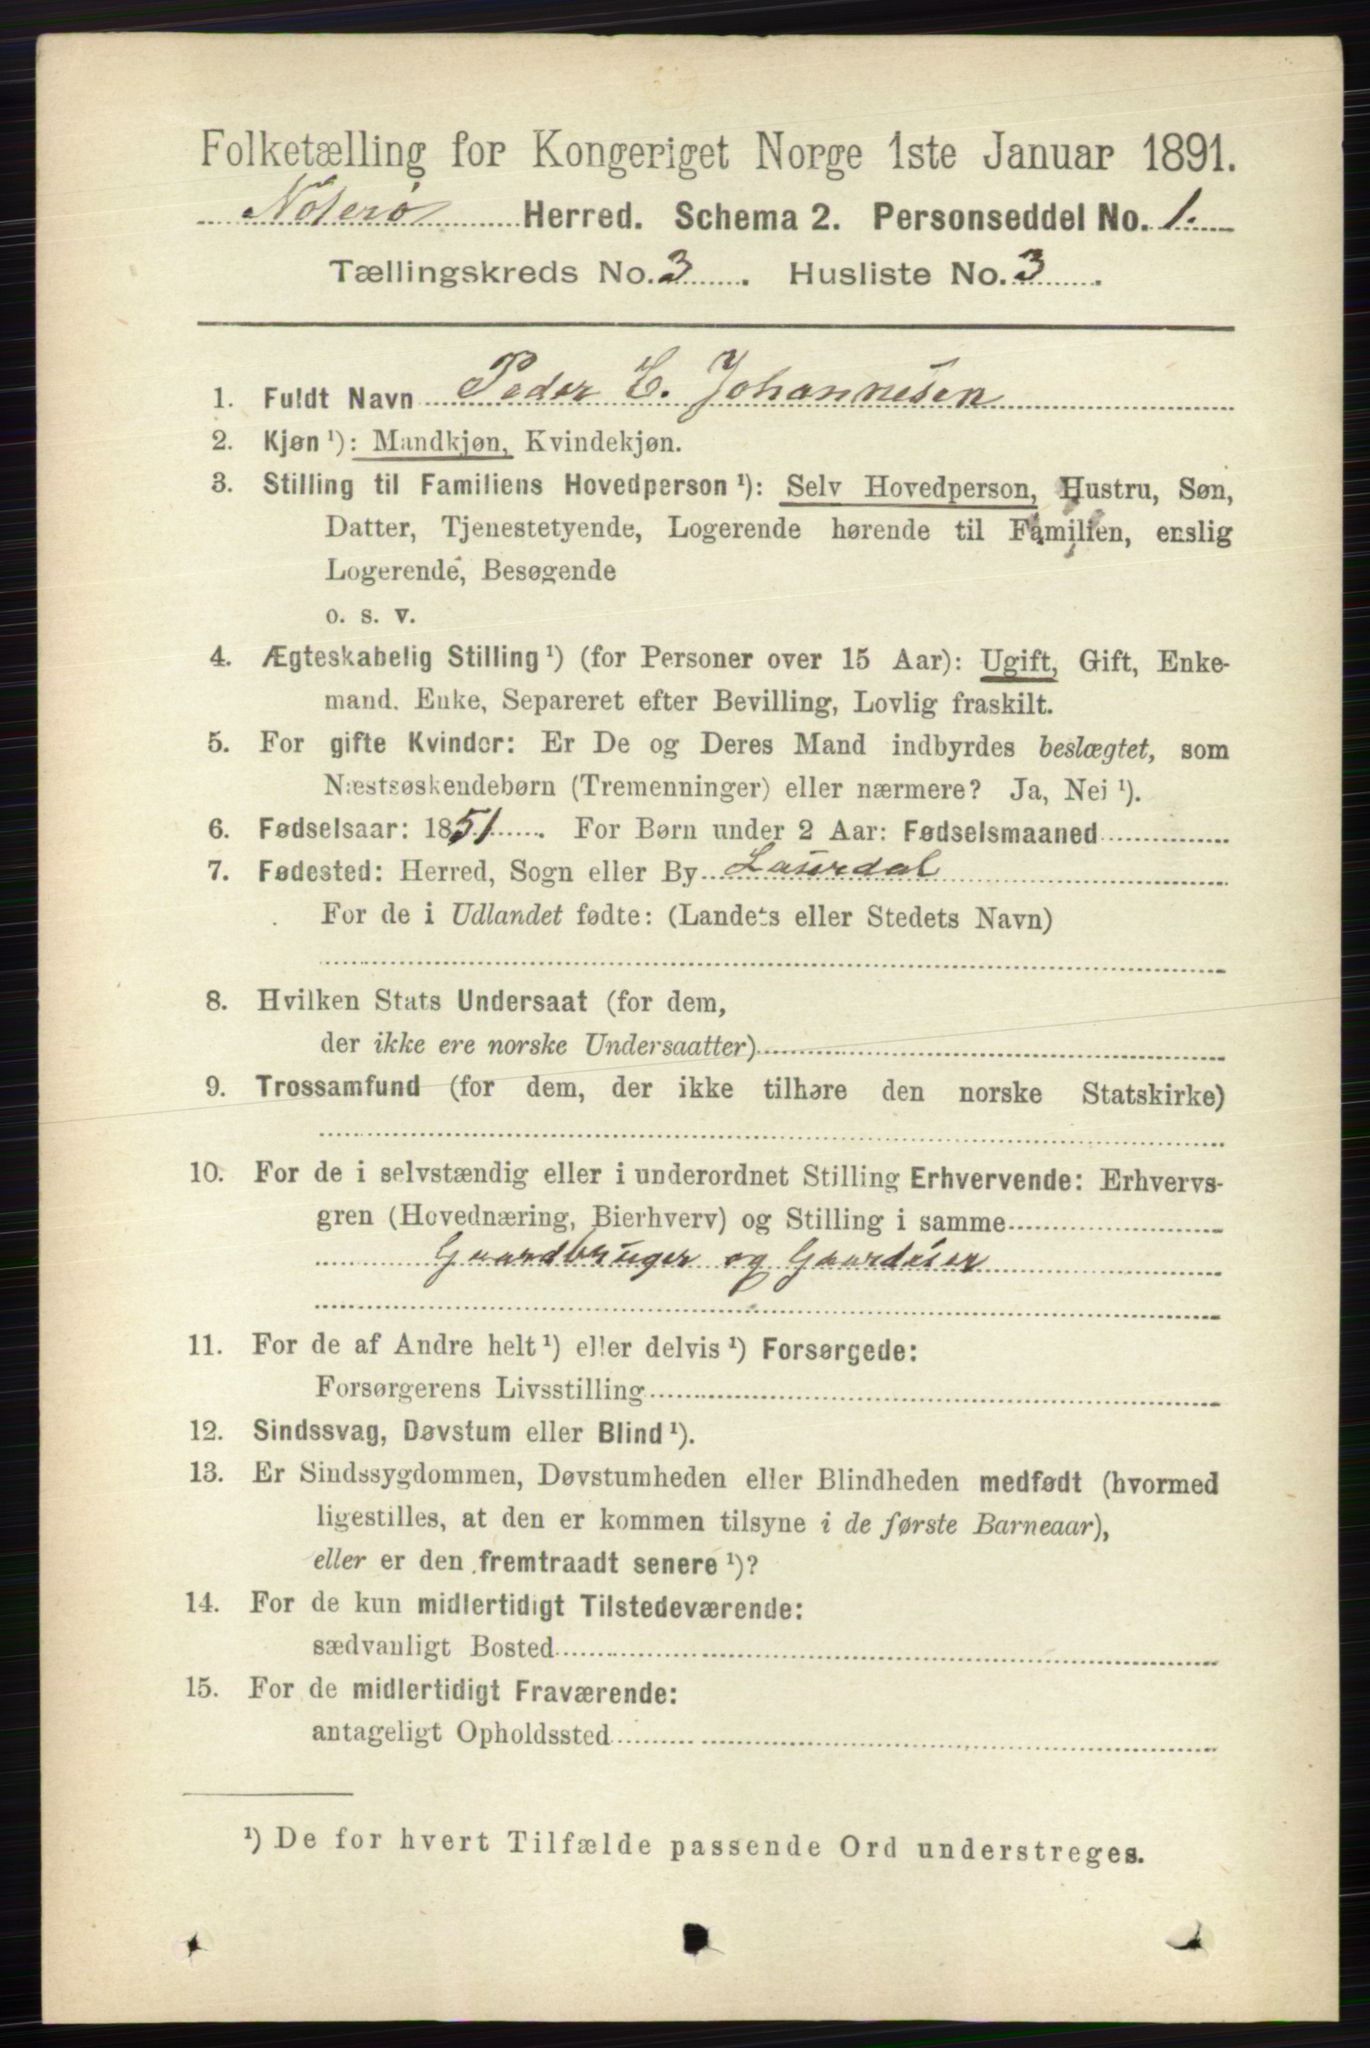 Folketælling for Kongeriget Norge 1ste Januar 1891.
Nøterø Herred. Schema 2. Personseddel No. 1.
Tællingskreds No. 3. Husliste No. 3.
1. Fuldt Navn Peder C. Johannesen
2. Kjøn ¹): Mandkjøn, Kvindekjøn.
3. Stilling til Familiens Hovedperson ¹): Selv Hovedperson, Hustru, Søn,
Datter, Tjenestetyende, Logerende hørende til Familien, enslig
Logerende, Besøgende
o. s. v.
4. Ægteskabelig Stilling ¹) (for Personer over 15 Aar): Ugift, Gift, Enke-
mand, Enke, Separeret efter Bevilling, Lovlig fraskilt.
5. For gifte Kvinder: Er De og Deres Mand indbyrdes beslægtet, som
Næstsøskendebørn (Tremenninger) eller nærmere? Ja, Nei ¹).
6. Fødselsaar: 1851. For Børn under 2 Aar: Fødselsmaaned
7. Fødested: Herred, Sogn eller By Laurdal
For de i Udlandet fødte: (Landets eller Stedets Navn)
8. Hvilken Stats Undersaat (for dem,
der ikke ere norske Undersaatter)
9. Trossamfund (for dem, der ikke tilhøre den norske Statskirke)
10. For de i selvstændig eller i underordnet Stilling Erhvervende: Erhvervs-
gren (Hovednæring, Bierhverv) og Stilling i samme
Gaardbruger og Gaardeier
11. For de af Andre helt ¹) eller delvis ¹) Forsørgede:
Forsørgerens Livsstilling
12. Sindssvag, Døvstum eller Blind ¹).
13. Er Sindssygdommen, Døvstumheden eller Blindheden medfødt (hvormed
ligestilles, at den er kommen tilsyne i de første Barneaar),
eller er den fremtraadt senere ¹)?
14. For de kun midlertidigt Tilstedeværende:
sædvanligt Bosted
15. For de midlertidigt Fraværende:
antageligt Opholdssted
¹) De for hvert Tilfælde passende Ord understreges.